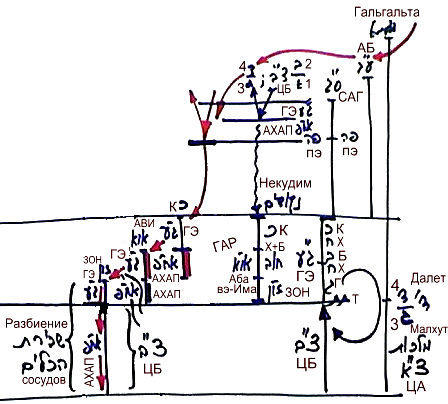 Гальгальта
АБ
ע"ב
4 2
3 1
ЦБ
ס"ג
САГ
ГЭ
ג"ע
АХАП
אח"פ
פה
ПЭ
פה
ПЭ
Некудим
נקודים
К כ
ГЭ
АВИ
ג"ע
ГЭ
או"א
אח"פ
АХАП
АХАП
ГАР
כ К
Х+Б
חו"ב
או"א
Аба
вэ-Има
ЗОН
זו"ן
כ К
ח Х
ג"ע
ב Б
ГЭ
ח Х
ת Т
ЗОН
ГЭ
ג"ע
אח"פ
4 Далет
3 Малхут
מלכות
צ"א
ЦА
Разбиение
שבירת
הכלים
сосудов
АХАП
אח"פ
צ"ב
ЦБ
צ"ב
ЦБ